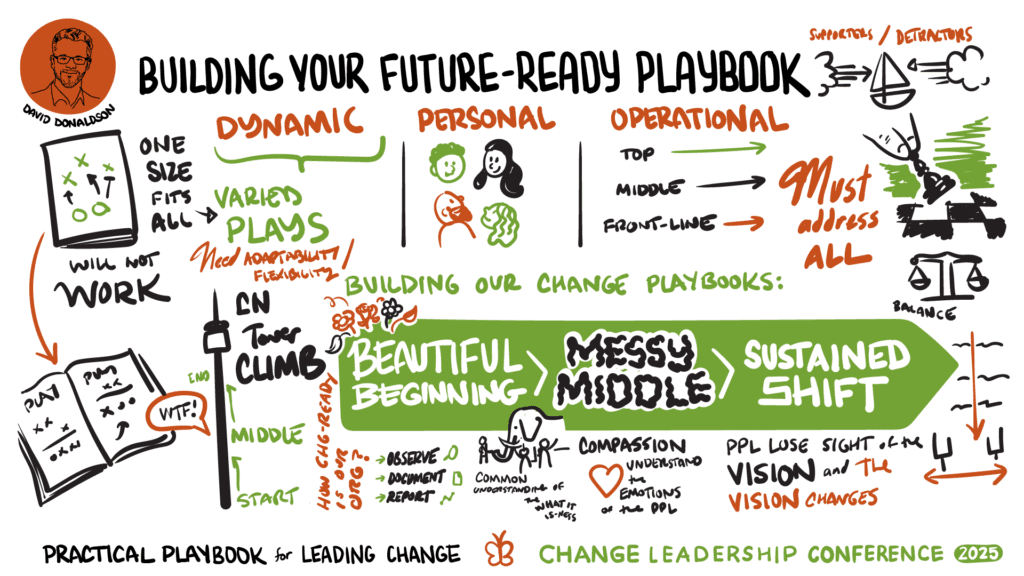 DAVID DONALDSON
BUILDING YOUR FUTURE-READY PLAYBOOK
SUPPORTERS / DETRACTORS
ONE
SIZE
FITS
ALL
WILL NOT
WORK
DYNAMIC
VARIED
PLAYS
Need ADAPTABILITY/
FLEXIBILITY
PERSONAL
OPERATIONAL
TOP
MIDDLE
FRONT-LINE
Must
address
ALL
BALANCE
PLAY
PLAY
WTF!
CN
Tower
CLIMB
END
MIDDLE
START
BUILDING OUR CHANGE PLAYBOOKS:
BEAUTIFUL
BEGINNING
MESSY
MIDDLE
SUSTAINED
SHIFT
HOW CHG-READY
IS OUR
ORG?
OBSERVE
DOCUMENT
REPORT
COMMON
UNDERSTANDING OF
THE WHAT IT
IS-NESS
COMPASSION
UNDERSTAND
the
EMOTIONS
of the PPL
PPL LOSE SIGHT of the
VISION and THE
VISION CHANGES
PRACTICAL PLAYBOOK for LEADING CHANGE
CHANGE LEADERSHIP CONFERENCE 2025